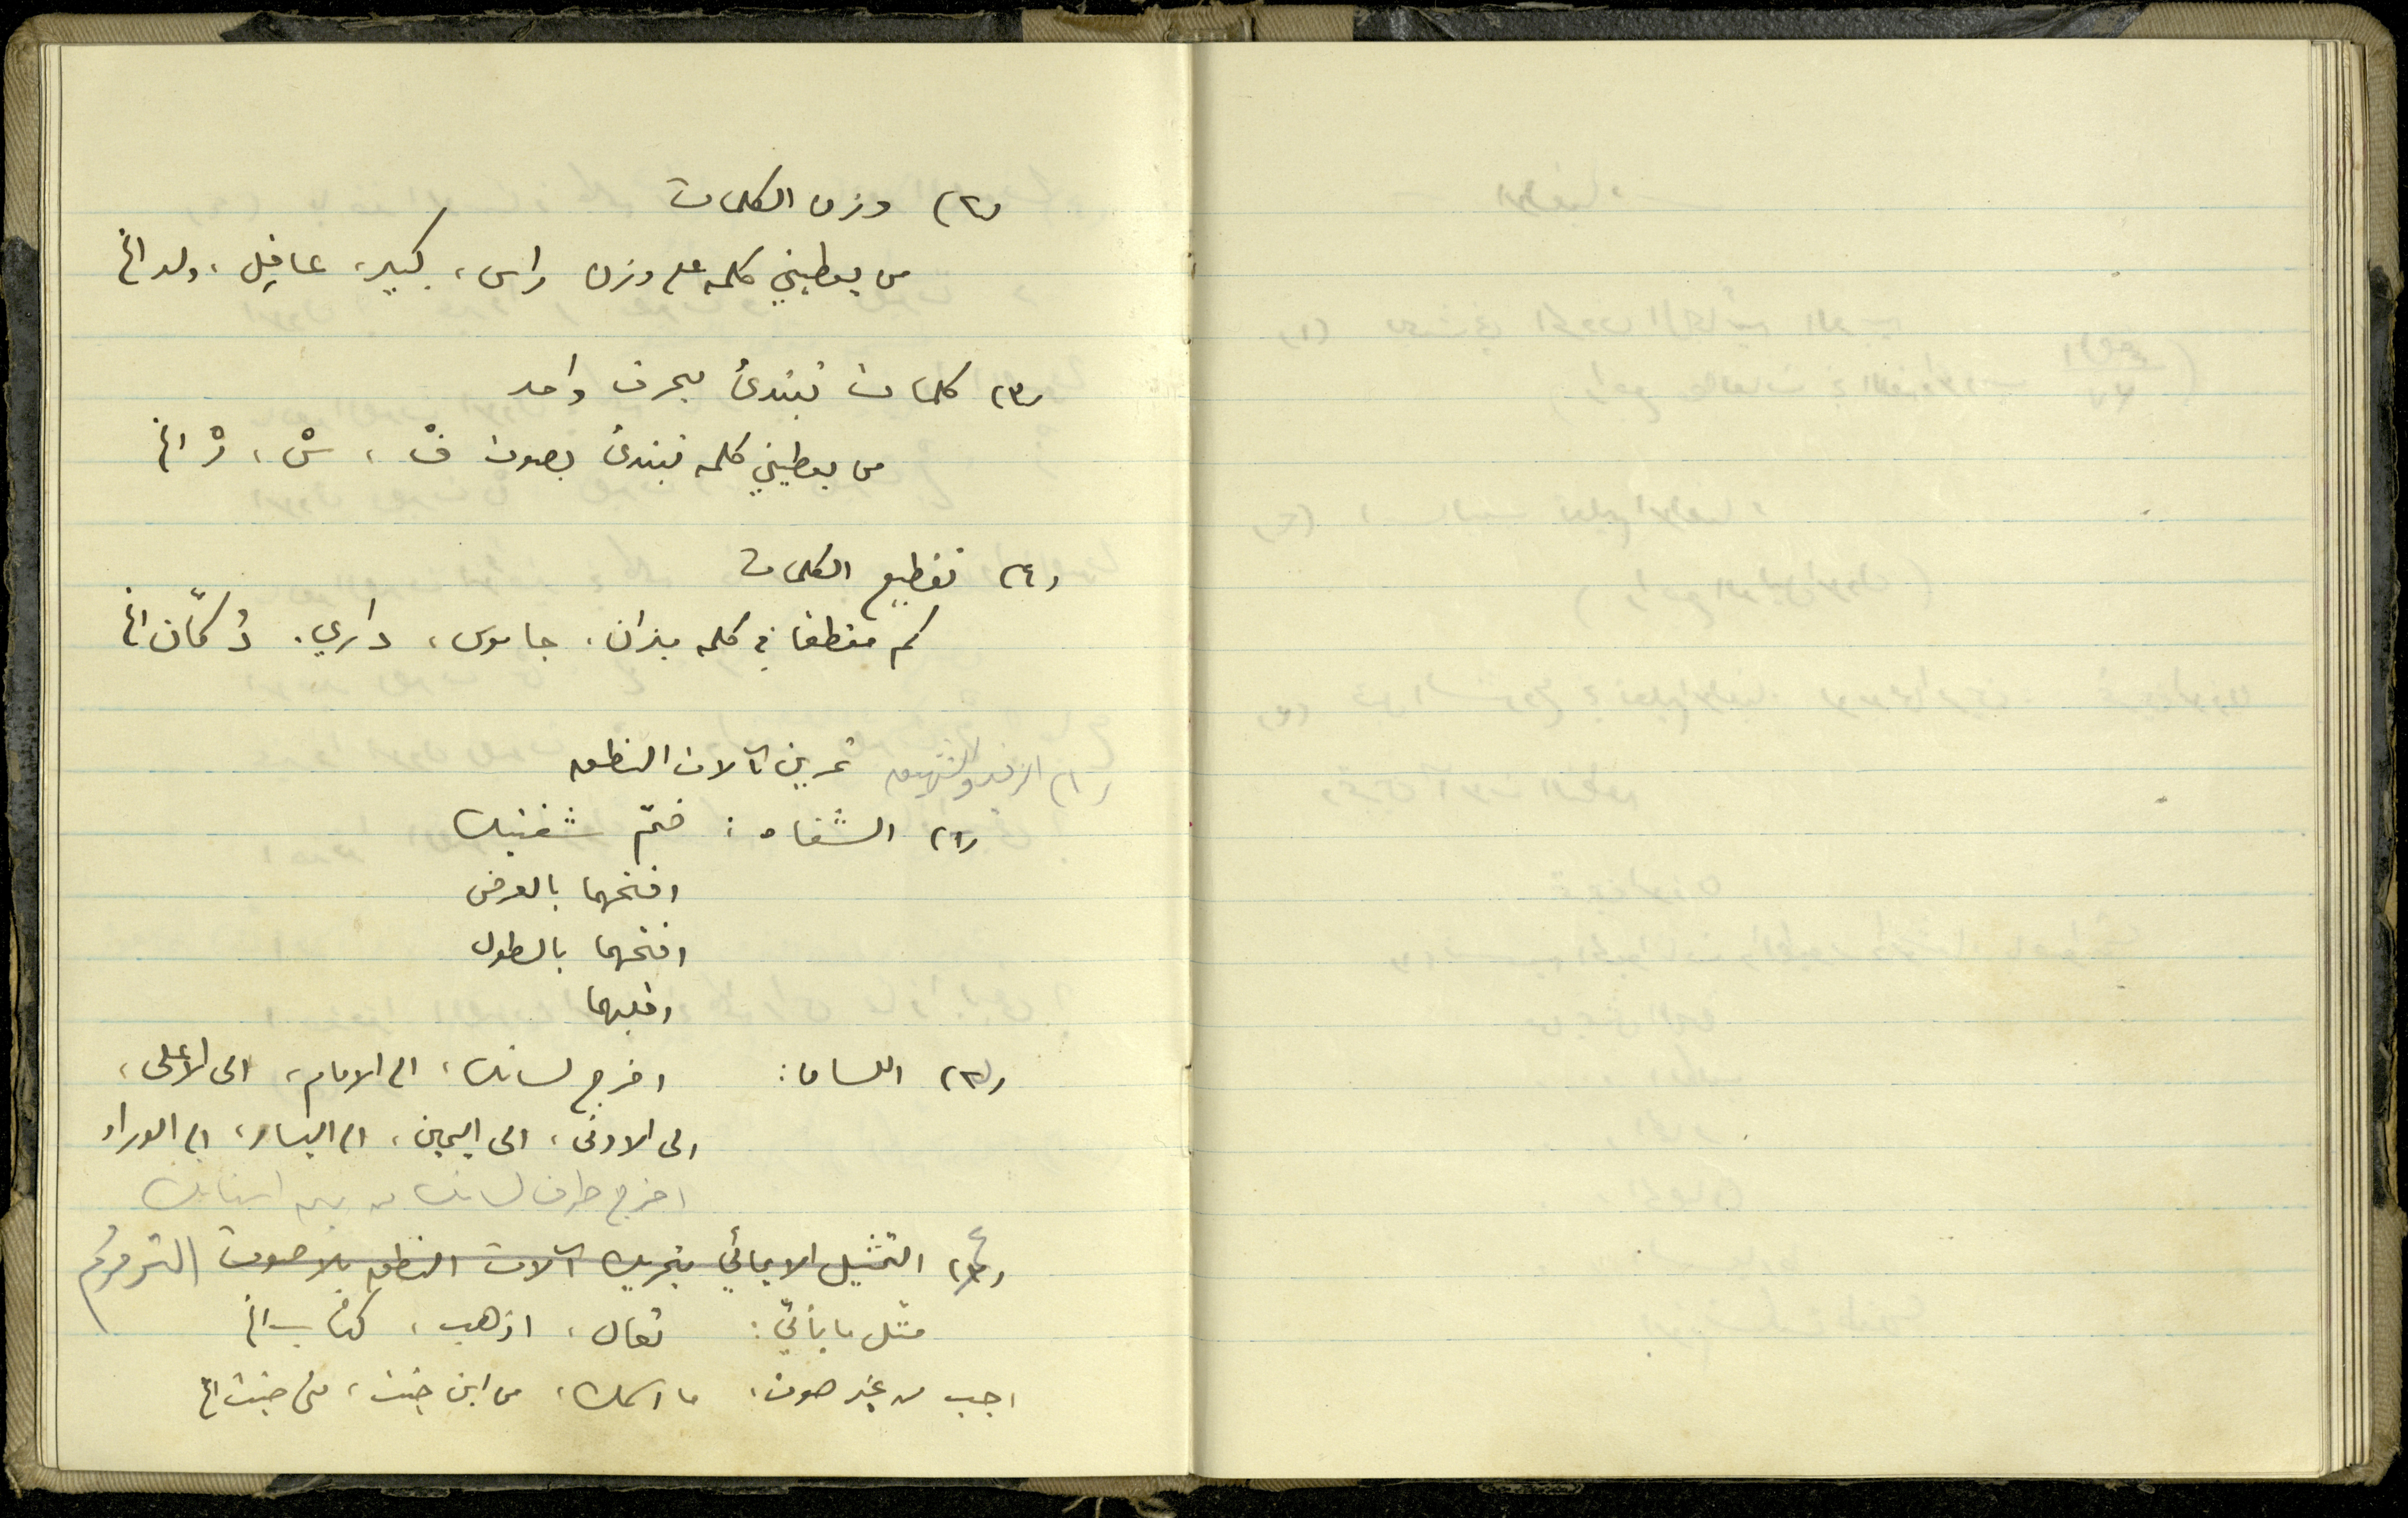 (٢) وزن الكلمات
من يعطيني كلمه على وزن راس، كبير، عاقل، ولد الخ
(٣) كلمات تبتدئ بحرف واحد
من يعطيني كلمه تبتدئ بصوت فْ، سْ، رْ الخ
(٤) تقطيع الكلمات
كم مقطعًا في كلمه ميزان، جاموس، داري، دُكّان الخ
تمرين آلات النطق
(١) الزفير والشهيق
(٢) الشفاه: ضمّ شفتيك
افتحهما بالعرض
افتحهما بالطول
اقلبهما
(٣) اللسان: اخرج لسانك، الى الامام، الى الاعلى،
الى الادنى، الى اليمين، الى اليسار، الى الوراء
اخرج طرف لسانك من بين اسنانك
(٤) التمثيل الايمائي بتحريك آلات النطق بلا صوت
مثل ما يأتي: تعال، اذهب، كتاب الخ
اجب من غير صوت، ما اسمك، من اين جئت، متى جئت الخ